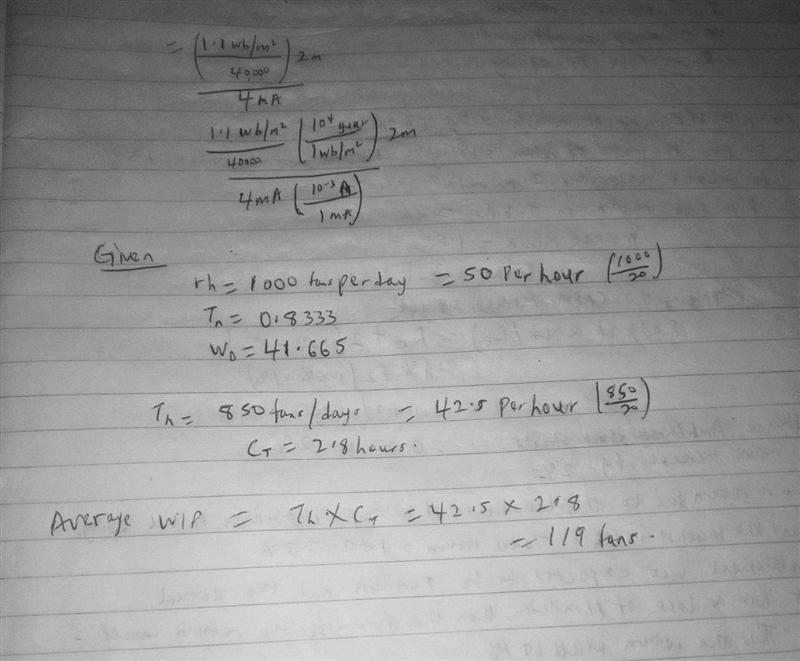 = (1.1 wb/m² / 40,000) 2m
4mA
1.1 wb/m² / 40000 (10⁴ guar / 1wb/m²) 2m
4mA (10⁻³ A / 1mA)
Given
rh = 1000 fans per day = 50 Per hour (1000/20)
Tn = 0.8333
W0 = 41.665
Th = 850 fans/days = 42.5 Per hour (850/20)
CT = 2.8 hours.
Average WIP = Th X CT = 42.5 × 2.8
= 119 fans.